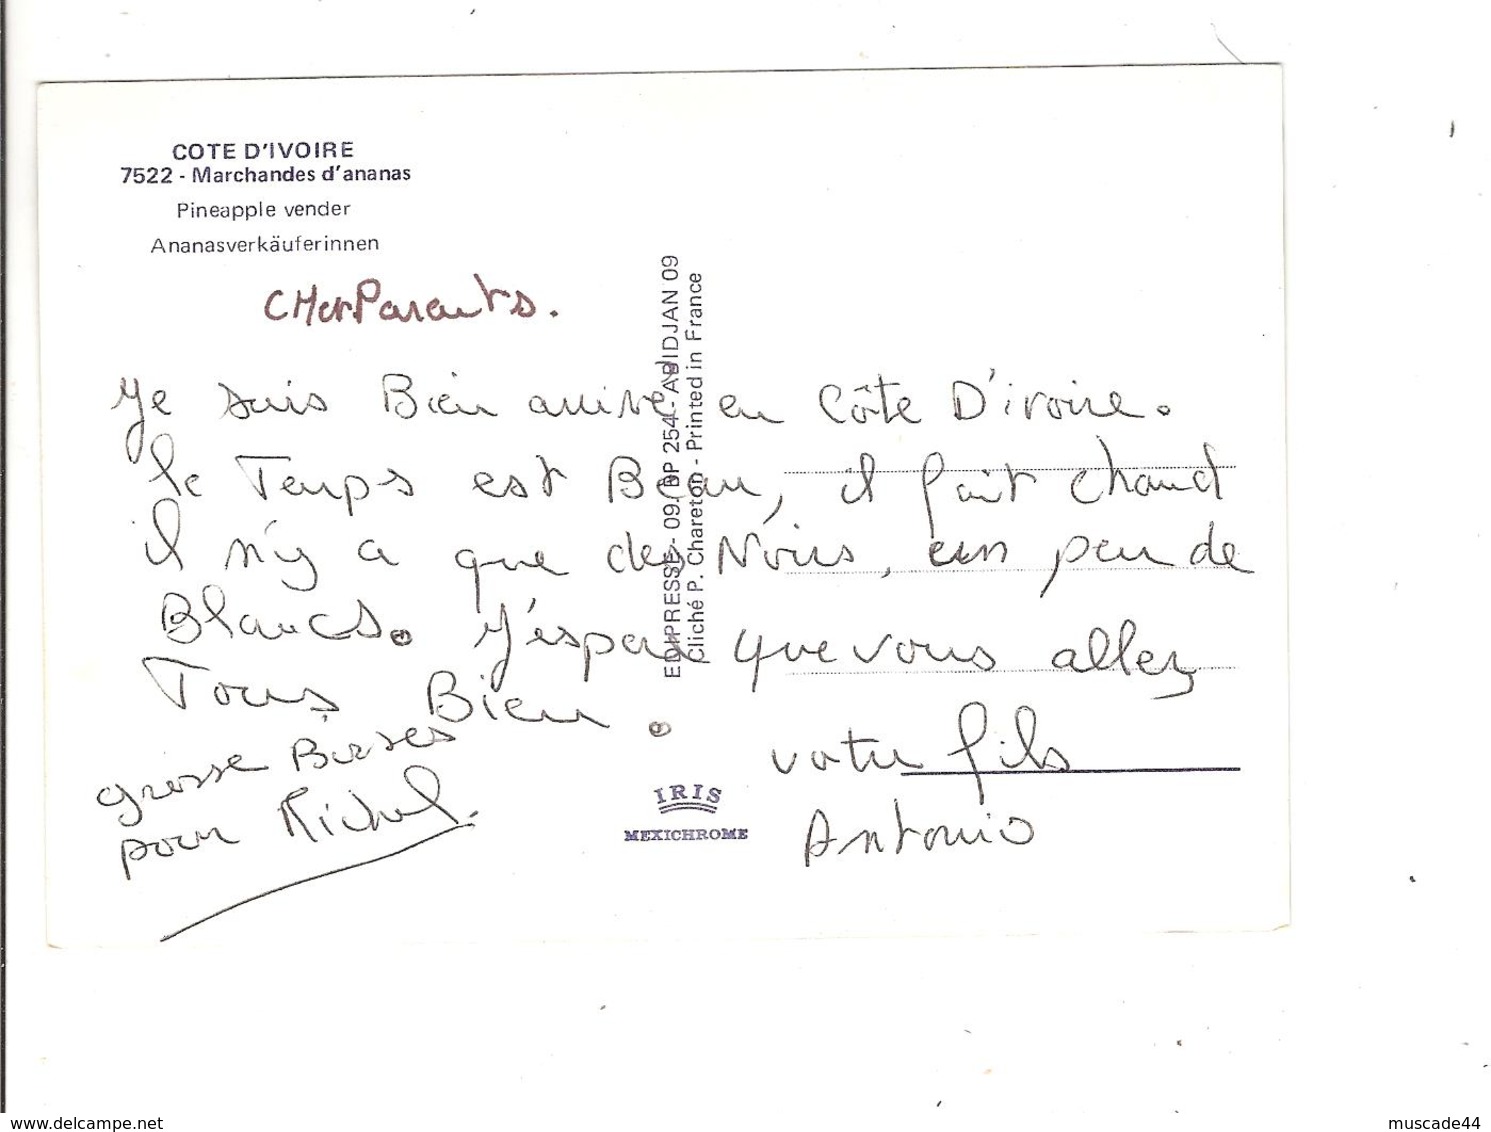 COTE D'IVOIRE
7522 - Marchandes d'ananas
Pineapple vender
Ananasverkäuferinnen
CHer Parents.
Je suis Bien arrivé en Côte D'ivoire.
le Temps est Beau, il fait chaud
il n'y a que des Noirs, un peu de
Blancs. J'espère que vous allez
Tous Bien.
grosse Bises
pour Michel.
votre fils
Antonio
EDIPRESSE - 09. BP 254 - ABIDJAN 09
Cliché P. Chareton - Printed in France
IRIS
MEXICHROME
www.delcampe.net
muscade44